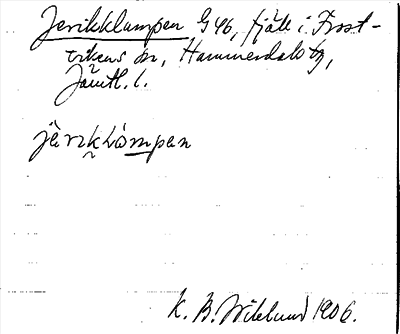 Jerikklumpen G46, fjäll i Frost-
vikens sn, Hammerdals tg,
Jämtl. l.
jèrikklòmpen
K. B. Wiklund 1906.